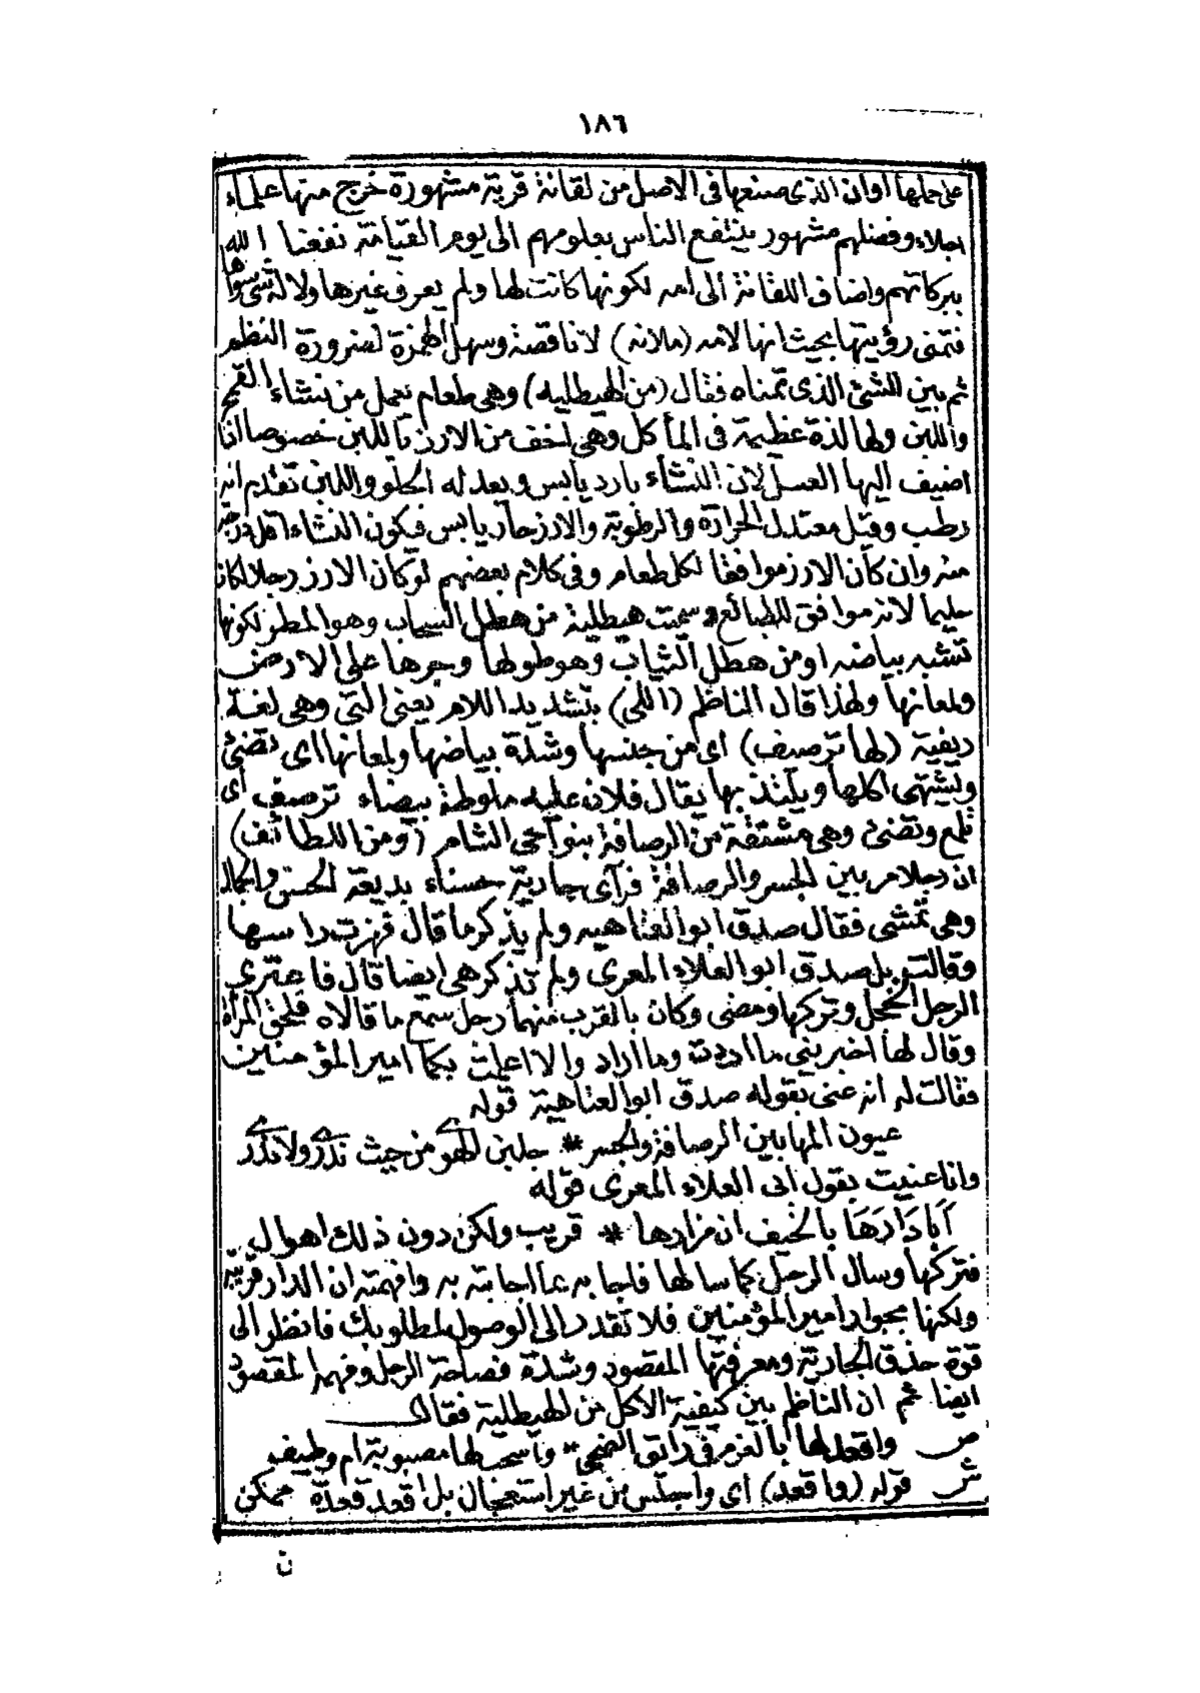 ١٨٦
على حملها أوان الذى صنعها فى الاصل من لقانة قرية مشهورة خرج منها علماء
اجلاء وفضلهم مشهور ينتفع الناس بعلومهم الى يوم القيامة نفعنا الله
ببركاتهم واضاف اللقانة الى امه لكونها كانت لها ولم يعرف غيرها ولا له شئ سواها
فتمنى رؤيتها بحيث انها لامه (ملانه) لا ناقصة وسهل الهمزة لضرورة النظم
ثم بين الشئ الذى تمناه فقال (من الهيطليه) وهى طعام يعمل من نشاء القمح
واللبن ولها لذة عظيمة فى المأكل وهى اخف من الارز باللبن خصوصا اذا
اضيف اليها العسل لان النشاء بارد يابس ويعدله الحلو واللبن تقدم انه
رطب وقيل معتدل الحرارة والرطوبة والارز حار يابس فيكون النشاء اقل درجة
منه وان كان الارز موافقا لكل طعام وفى كلام بعضهم لو كان الارز رجلا لكان
حليما لانه موافق للطبائع وسميت هيطلية من هطل السحاب وهو المطر لكونها
تشبه بياضه او من هطل الثياب وهو طولها وجرها على الارض
ولمعانها ولهذا قال الناظم (اللى) بتشديد اللام يعنى التى وهى لغة
ريفية (لها ترصيف) اى من جنسها وشدة بياضها ولمعانها اى تضئ
ويشتهى اكلها ويلتذ بها يقال فلان عليه ملوطة بيضاء ترصيف اى
تلمع وتضئ وهى مشتقة من الرصافة بنواحى الشام (ومن اللطائف)
ان رجلا مر بين الجسر والرصافة فرآى جارية حسناء بديعة الحسن والجمال
وهى تمشى فقال صدق ابو العتاهيه ولم يذكر ما قال فهزت راسها
وقالت بل صدق ابو العلاء المعرى ولم تذكر هى ايضا ما قال فاعترى
الرجل الخجل وتركها ومضى وكان بالقرب منهما رجل سمع ما قالاه فلحق المرأة
وقال لها اخبرينى ما اردت وما اراد والا اعلمت بكما امير المؤمنين
فقالت له انه عنى بقوله صدق ابو العتاهية قوله
عيون المها بين الرصافة والجسر * جلبن الهوى من حيث ندرى ولا ندرى
وانا عنيت بقول ابى العلاء المعرى قوله
أَيَا دَارَهَا بالخيف ان مزارها * قريب ولكن دون ذلك اهوال
فتركها وسال الرجل كما سالها فاجابه بما اجابته به وافهمته ان الدار قريبة
ولكنها بجوار امير المؤمنين فلا تقدر الى الوصول لمطلوبك فانظر الى
قوة حذق الجارية ومعرفتها المقصود وشدة فصاحة الرجل وفهم المقصود
ايضا ثم ان الناظم بين كيفية الاكل من الهيطلية فقال
ص واقعد لها بالعزم فى رائق الضحى * واسحب لها مصبوبة ام وطيف
ش قوله (واقعد) اى واجلس من غير استعجال بل اقعد قعدة ممكن
ن